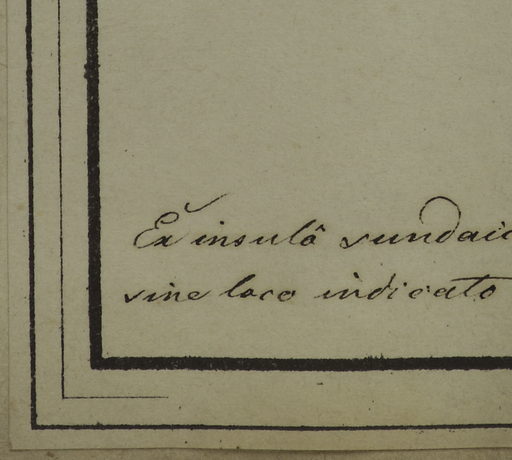 Ex insulâ sundaic
sine loco indicato